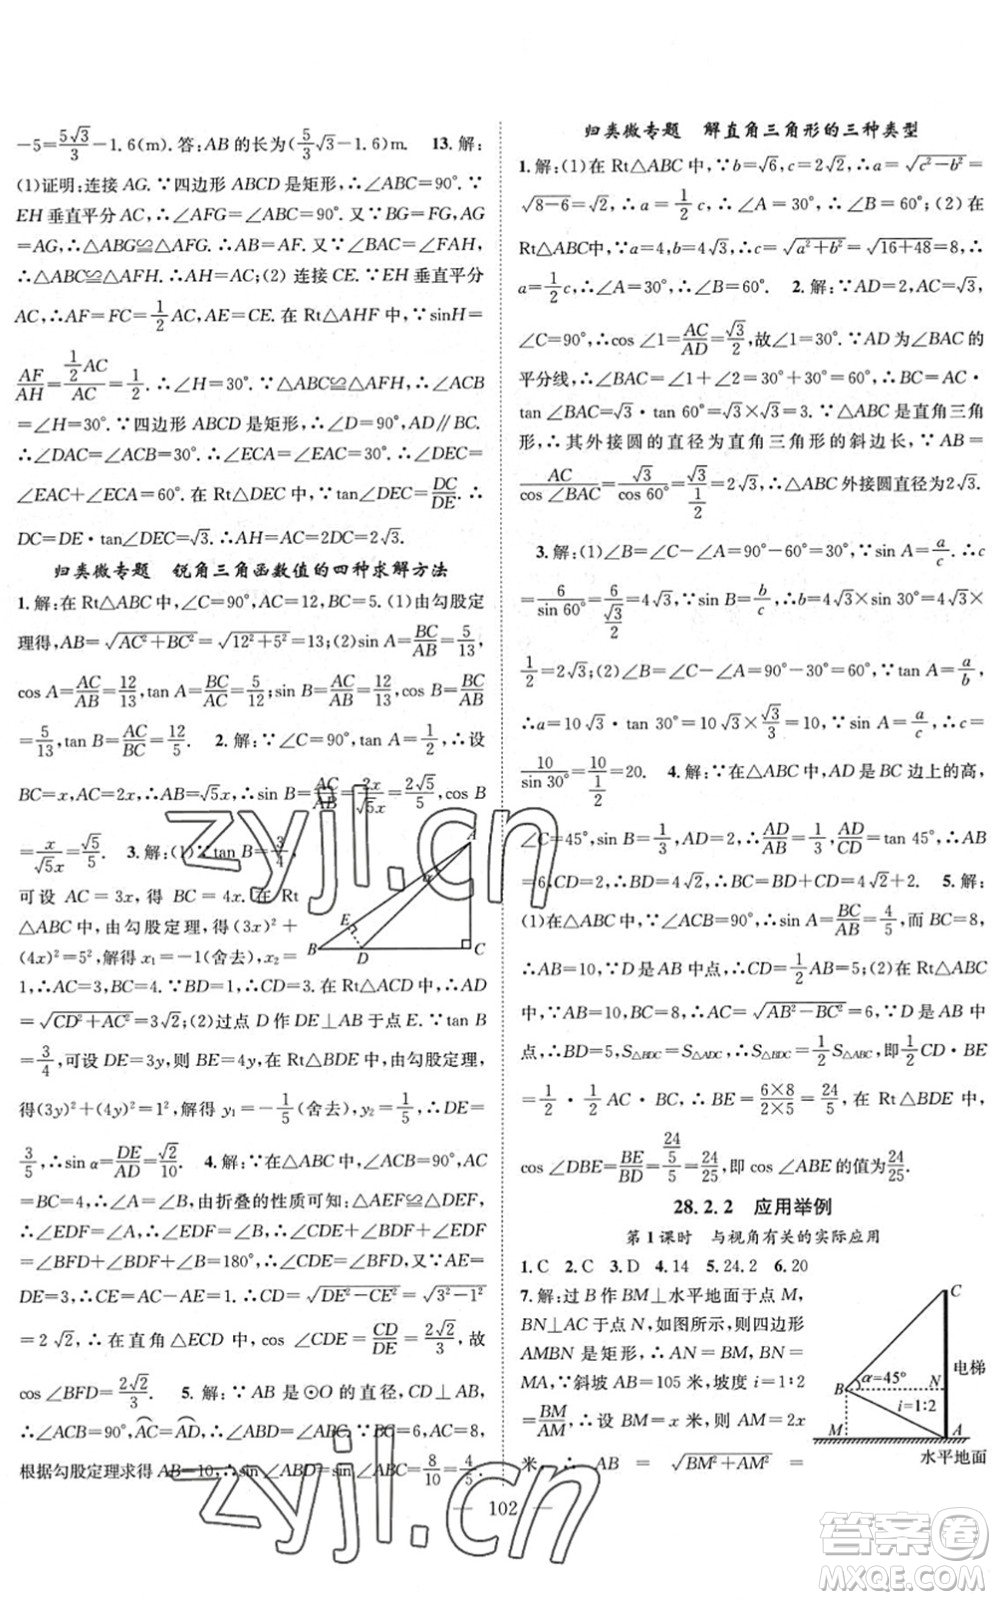 -5=\frac{5\sqrt{3}}{3}-1.6(m). 答:AB 的长为(\frac{5}{3}\sqrt{3}-1.6)m. 13. 解:
(1)证明:连接 AG. ∵四边形 ABCD 是矩形,∴∠ABC=90°. ∵
EH 垂直平分 AC,∴∠AFG=∠ABC=90°. 又∵BG=FG,AG
=AG,∴△ABG≌△AFG. ∴AB=AF. 又∵∠BAC=∠FAH,
∴△ABC≌△AFH. ∴AH=AC;(2) 连接 CE. ∵EH 垂直平分
AC,∴AF=FC=\frac{1}{2}AC,AE=CE. 在 Rt△AHF 中,∵sinH=
\frac{AF}{AH}=\frac{\frac{1}{2}AC}{AC}=\frac{1}{2}. ∴∠H=30°. ∵△ABC≌△AFH,∴∠ACB
=∠H=30°. ∵四边形 ABCD 是矩形,∴∠D=90°,AD∥BC.
∴∠DAC=∠ACB=30°. ∴∠ECA=∠EAC=30°. ∴∠DEC=
∠EAC+∠ECA=60°. 在 Rt△DEC 中,∵tan∠DEC=\frac{DC}{DE}. ∴
DC=DE·tan∠DEC=\sqrt{3}. ∴AH=AC=2DC=2\sqrt{3}.
归类微专题 锐角三角函数值的四种求解方法
1. 解:在 Rt△ABC 中,∠C=90°,AC=12,BC=5. (1)由勾股定
理得,AB=\sqrt{AC²+BC²}=\sqrt{12²+5²}=13;(2)sin A=\frac{BC}{AB}=\frac{5}{13},
cos A=\frac{AC}{AB}=\frac{12}{13},tan A=\frac{BC}{AC}=\frac{5}{12};sin B=\frac{AC}{AB}=\frac{12}{13},cos B=\frac{BC}{AB}
=\frac{5}{13},tan B=\frac{AC}{BC}=\frac{12}{5}. 2. 解:∵∠C=90°,tan A=\frac{1}{2},∴设
BC=x,AC=2x,∴AB=\sqrt{5}x,∴sin B=\frac{AC}{AB}=\frac{2x}{\sqrt{5}x}=\frac{2\sqrt{5}}{5},cos B
=\frac{x}{\sqrt{5}x}=\frac{\sqrt{5}}{5}. 3. 解:(1)∵tan B=\frac{3}{4},
A
可设 AC=3x,得 BC=4x. 在 Rt
△ABC 中,由勾股定理,得(3x)²+
E
B D C
(4x)²=5²,解得 x₁=-1(舍去),x₂=
1,∴AC=3,BC=4. ∵BD=1,∴CD=3. 在 Rt△ACD 中,AD
=\sqrt{CD²+AC²}=3\sqrt{2};(2)过点 D 作 DE⊥AB 于点 E. ∵tan B
=\frac{3}{4},可设 DE=3y,则 BE=4y,在 Rt△BDE 中,由勾股定理,
得(3y)²+(4y)²=1²,解得 y₁=-\frac{1}{5}(舍去),y₂=\frac{1}{5},∴DE=
\frac{3}{5},∴sin α=\frac{DE}{AD}=\frac{\sqrt{2}}{10}. 4. 解:∵在△ABC 中,∠ACB=90°,
AC=BC=4,∴∠A=∠B,由折叠的性质可知:△AEF≌△DEF,
∴∠EDF=∠A,∴∠EDF=∠B,∴∠CDE+∠BDF+∠EDF=
∠BFD+∠BDF+∠B=180°,∴∠CDE=∠BFD. 又∵AE=
DE=3,∴CE=AC-AE=1,∴CD=\sqrt{DE²-CE²}=\sqrt{3²-1²}
=2\sqrt{2},∴在直角△ECD 中,cos ∠CDE=\frac{CD}{DE}=\frac{2\sqrt{2}}{3},故
cos∠BFD=\frac{2\sqrt{2}}{3}. 5. 解:∵AB 是⊙O 的直径,CD 平分∠ACB,
∴∠ACB=90°,⌒AC=⌒AD,∴∠ABD=∠ABC. ∵BC=6,AC=8,
根据勾股定理求得 AB=10,∴sin∠ABD=sin∠ABC=\frac{8}{10}=\frac{4}{5}.
归类微专题 解直角三角形的三种类型
1. 解:(1)在 Rt△ABC 中,∵b=\sqrt{6},c=2\sqrt{2},∴a=\sqrt{c²-b²}=
\sqrt{8-6}=\sqrt{2},∴a=\frac{1}{2}c,∴∠A=30°,∴∠B=60°;(2)在
Rt△ABC中,∵a=4,b=4\sqrt{3},∴c=\sqrt{a²+b²}=\sqrt{16+48}=8,∴
a=\frac{1}{2}c,∴∠A=30°,∴∠B=60°. 2. 解:∵AD=2,AC=\sqrt{3},
∠C=90°,∴cos∠1=\frac{AC}{AD}=\frac{\sqrt{3}}{2},故∠1=30°. ∵AD 为∠BAC 的
平分线,∴∠BAC=2∠1=2×30°=60°,∴BC=AC·
tan∠BAC=\sqrt{3}·tan 60°=\sqrt{3}×\sqrt{3}=3. ∵△ABC 是直角三角
形,∴其外接圆的直径为直角三角形的斜边长,∵AB=
\frac{AC}{cos ∠BAC}=\frac{\sqrt{3}}{cos 60°}=\frac{\sqrt{3}}{\frac{1}{2}}=2\sqrt{3},∴△ABC 外接圆直径为2\sqrt{3}.
3. 解:(1)∠B=∠C-∠A=90°-30°=60°,∵sin A=\frac{a}{c}. ∴c
=\frac{6}{sin 60°}=\frac{6}{\frac{\sqrt{3}}{2}}=4\sqrt{3},∵sin B=\frac{b}{c},∴b=4\sqrt{3}×sin 30°=4\sqrt{3}×
\frac{1}{2}=2\sqrt{3};(2)∠B=∠C-∠A=90°-30°=60°,∵tan A=\frac{a}{b},
∴a=10\sqrt{3}·tan 30°=10\sqrt{3}×\frac{\sqrt{3}}{3}=10,∵sin A=\frac{a}{c},∴c=
\frac{10}{sin 30°}=\frac{10}{\frac{1}{2}}=20. 4. 解:∵在△ABC 中,AD 是 BC 边上的高,
∠C=45°,sin B=\frac{1}{3},AD=2,∴\frac{AD}{AB}=\frac{1}{3},\frac{AD}{CD}=tan 45°,∴AB
=6,CD=2,∴BD=4\sqrt{2},∴BC=BD+CD=4\sqrt{2}+2. 5. 解:
(1)在△ABC 中,∵∠ACB=90°,sin A=\frac{BC}{AB}=\frac{4}{5},而 BC=8,
∴AB=10,∵D 是 AB 中点,∴CD=\frac{1}{2}AB=5;(2)在 Rt△ABC
中,∵AB=10,BC=8,∴AC=\sqrt{AB²-BC²}=6,∵D 是 AB 中
点,∴BD=5,S△BDC=S△ADC,∴S△BDC=\frac{1}{2}S△ABC,即\frac{1}{2}CD·BE
=\frac{1}{2}·\frac{1}{2}AC·BC,∴BE=\frac{6×8}{2×5}=\frac{24}{5},在 Rt△BDE 中,
cos ∠DBE=\frac{BE}{BD}=\frac{\frac{24}{5}}{5}=\frac{24}{25},即 cos ∠ABE 的值为\frac{24}{25}.
28.2.2 应用举例
第1课时 与视角有关的实际应用
1. C 2. C 3. D 4. 14 5. 24.2 6. 20
7. 解:过 B 作 BM⊥水平地面于点 M,
BN⊥AC 于点 N,如图所示,则四边形
AMBN 是矩形,∴AN=BM,BN=
MA,∵斜坡 AB=105 米,坡度 i=1:2
=\frac{BM}{AM},∴设 BM=x 米,则 AM=2x
米,∴AB=\sqrt{BM²+AM²}=
C
电梯
B α=45° N
i=1:2
M A
水平地面
102
zyjl.cn
答案圈
MXQE.COM